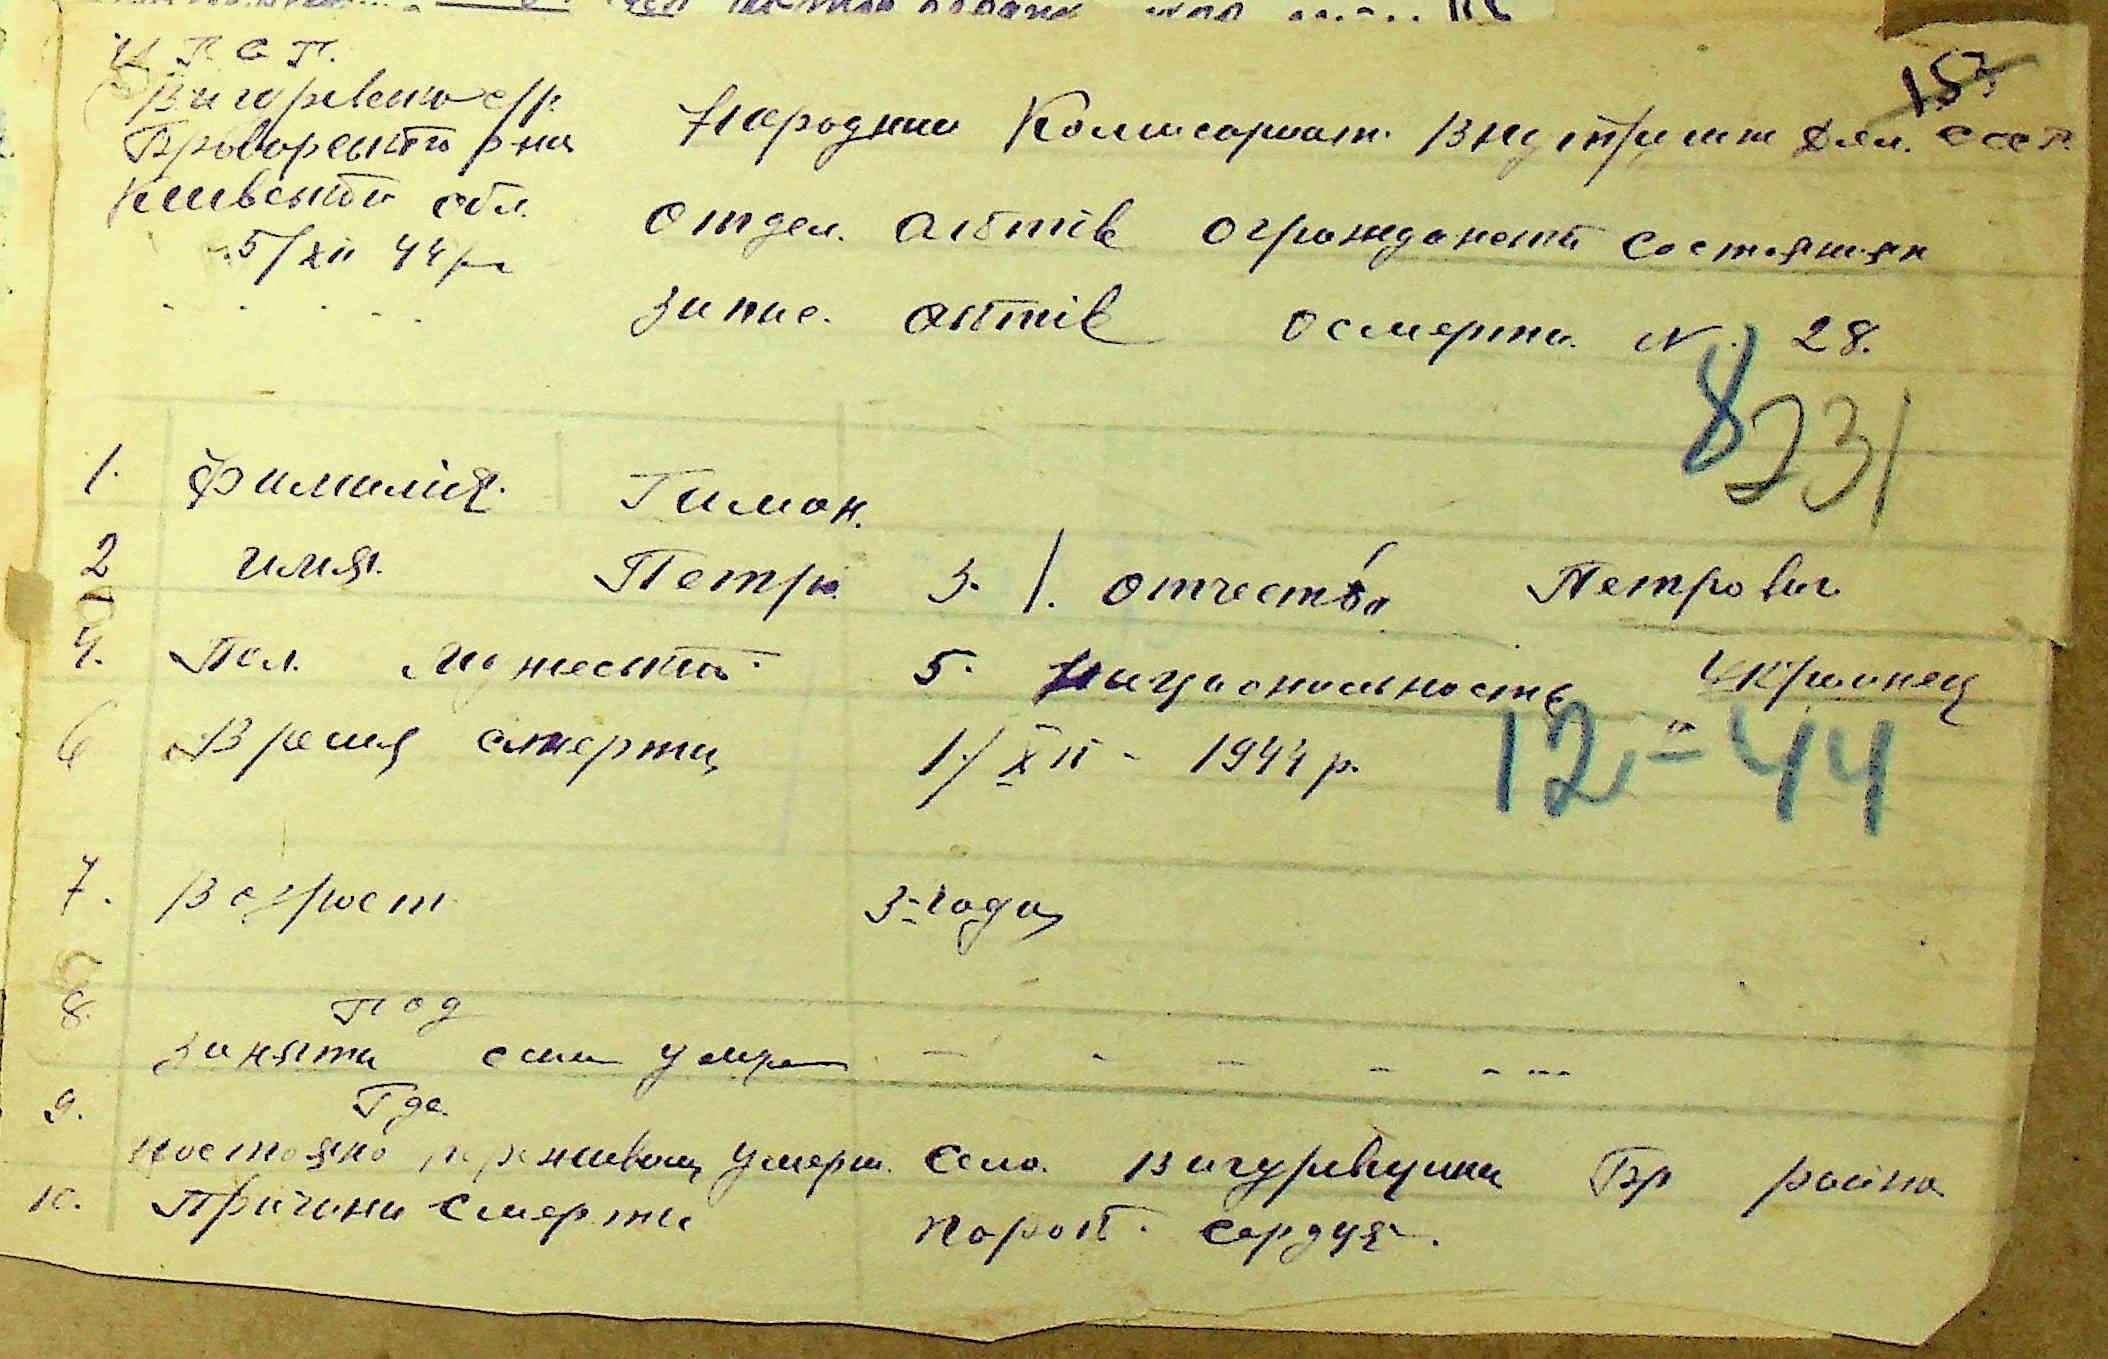 У.Р.С.Р.
Вигурівсько с/р.
Броворського р-на
Київської обл.
5/XII 44 р.
153
Народний Комисариат Внутришн Дял. СССР.
Отдел. актів огражданской состояния
запис. актів о смерти N. 28.
8231
1. Фамилія. Гимон.
2 имя. Петро 3. /. отчество Петрович
4. Пол. Мужеский. 5. Национальность Украинец
6 Время смерти 1/XII - 1944 р.
12-44
7. Возраст 3-года
8. Род
занятия если умре - - - - - - -
9. Где
постояно проживаю умерш. Село. Вигурівщина Бр район
10. Причини смерти порок. сердця.